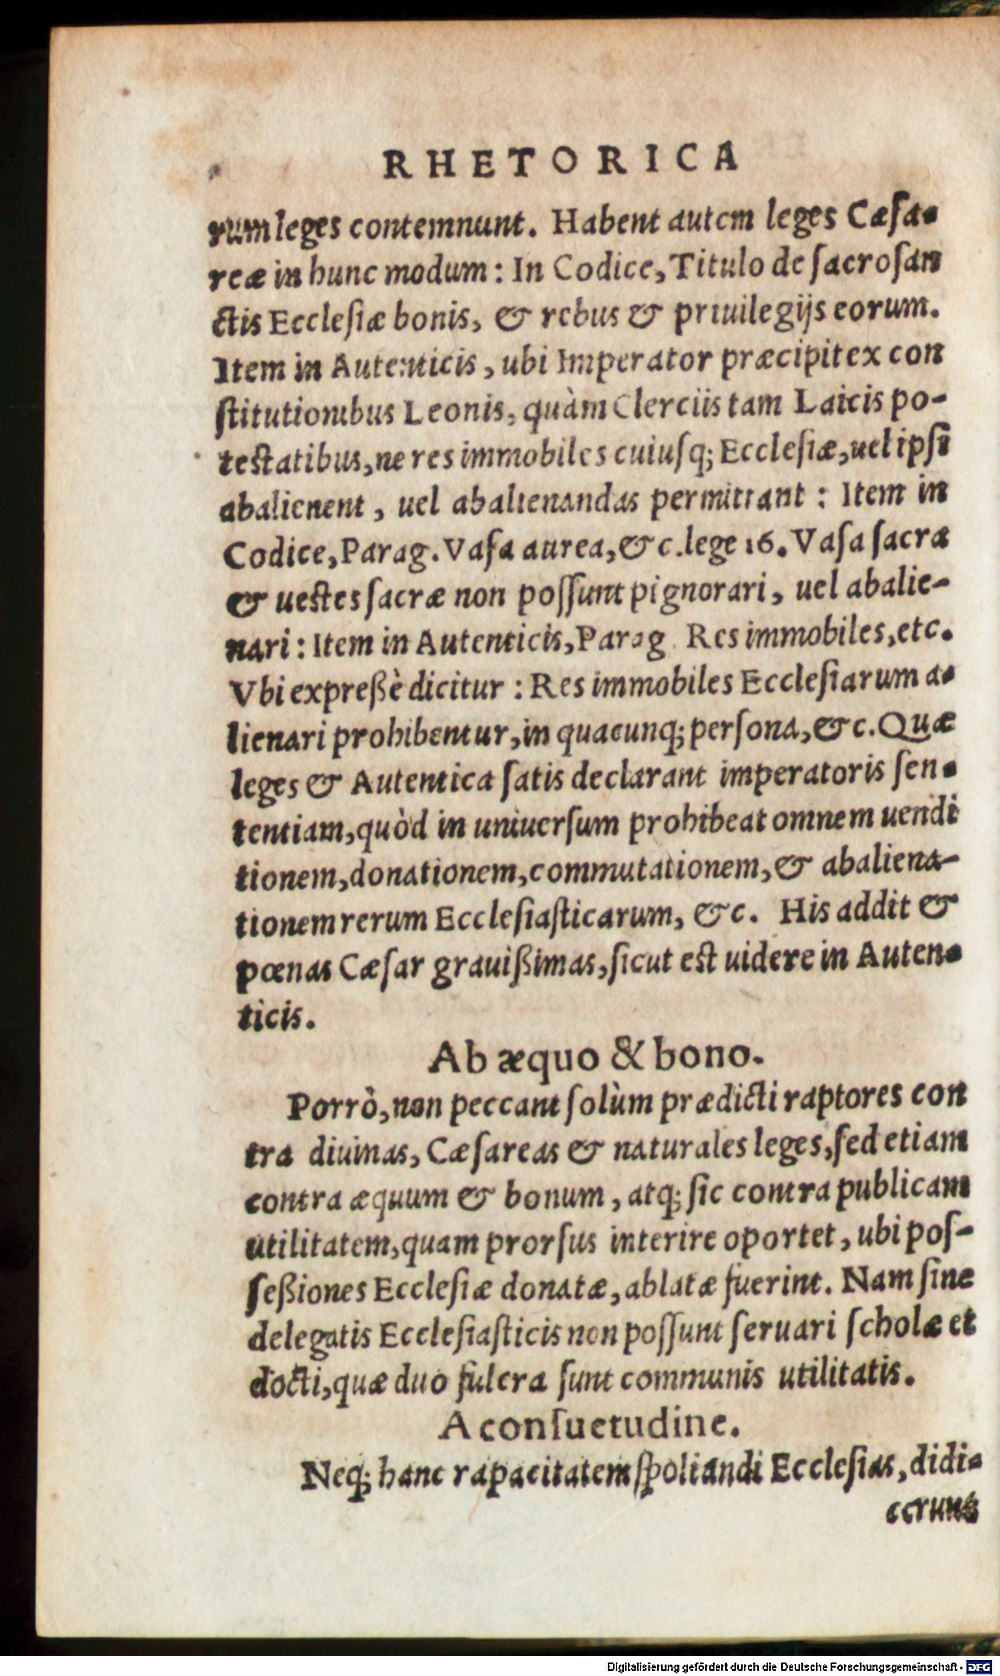 RHETORICA
rum leges contemnunt. Habent autem leges Cæsa-
reæ in hunc modum: In Codice, Titulo de sacrosan
ctis Ecclesiæ bonis, & rebus & priuilegijs eorum.
Item in Autenticis, ubi Imperator præcipit ex con
stitutionibus Leonis, quàm Clerciis tam Laicis po-
testatibus, ne res immobiles cuiusq; Ecclesiæ, uel ipsi
abalienent, uel abalienandas permittant: Item in
Codice, Parag. Vasa aurea, &c. lege 16. Vasa sacra
& uestes sacræ non possunt pignorari, uel abalie-
nari: Item in Autenticis, Parag. Res immobiles, etc.
Vbi expreßè dicitur: Res immobiles Ecclesiarum a-
lienari prohibentur, in quacunq; persona, &c. Quæ
leges & Autentica satis declarant imperatoris sen-
tentiam, quòd in uniuersum prohibeat omnem uendi
tionem, donationem, commutationem, & abaliena-
tionem rerum Ecclesiasticarum, &c. His addit &
pœnas Cæsar grauißimas, sicut est uidere in Auten-
ticis.
Ab æquo & bono.
Porrò, non peccant solùm prædicti raptores con
tra diuinas, Cæsareas & naturales leges, sed etiam
contra æquum & bonum, atq; sic contra publicam
utilitatem, quam prorsus interire oportet, ubi pos-
seßiones Ecclesiæ donatæ, ablatæ fuerint. Nam sine
delegatis Ecclesiasticis non possunt seruari scholæ et
docti, quæ duo fulcra sunt communis utilitatis.
A consuetudine.
Neq; hanc rapacitatem spoliandi Ecclesias, didi-
cerunt
Digitalisierung gefördert durch die Deutsche Forschungsgemeinschaft - DFG